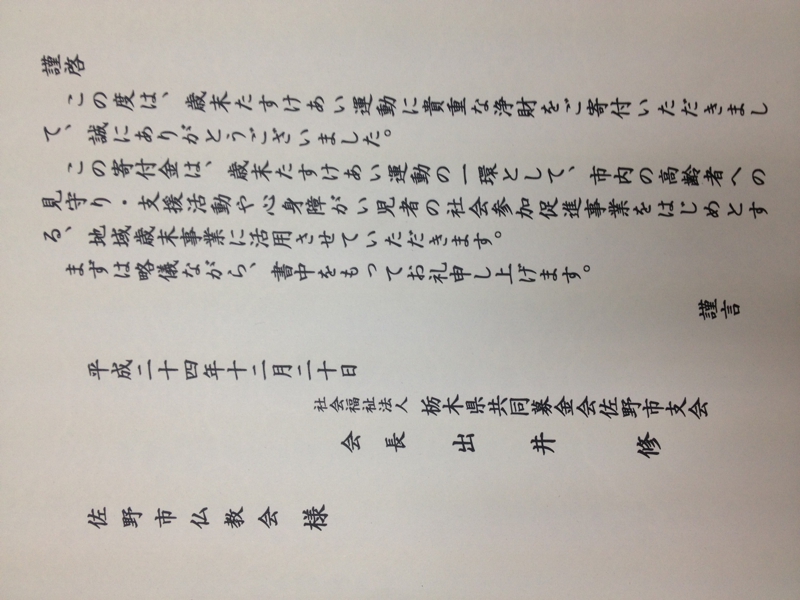 謹啓
この度は、歳末たすけあい運動に貴重な浄財をご寄付いただきまし
て、誠にありがとうございました。
この寄付金は、歳末たすけあい運動の一環として、市内の高齢者への
見守り・支援活動や心身障がい児者の社会参加促進事業をはじめとす
る、地域歳末事業に活用させていただきます。
まずは略儀ながら、書中をもってお礼申し上げます。
謹言
平成二十四年十二月二十日
社会福祉法人 栃木県共同募金会佐野市支会
会 長 出 井 修
佐野市仏教会 様